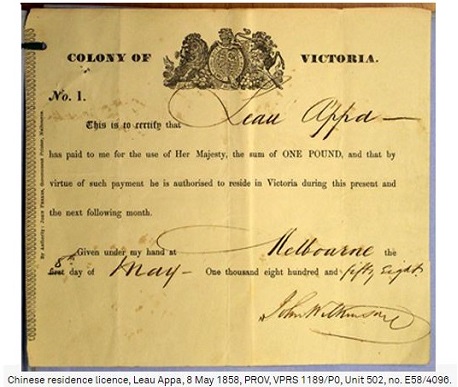 COLONY OF VICTORIA.
No. 1.
This is to certify that Leau Appa
has paid to me for the use of Her Majesty, the sum of ONE POUND, and that by
virtue of such payment he is authorised to reside in Victoria during this present and
the next following month.
Given under my hand at Melbourne the
8th day of May One thousand eight hundred and fifty Eight.
John Wilkinson
By Authority: John Ferres, Government Printer, Melbourne.
Chinese residence licence, Leau Appa, 8 May 1858, PROV, VPRS 1189/P0, Unit 502, no. E58/4096.